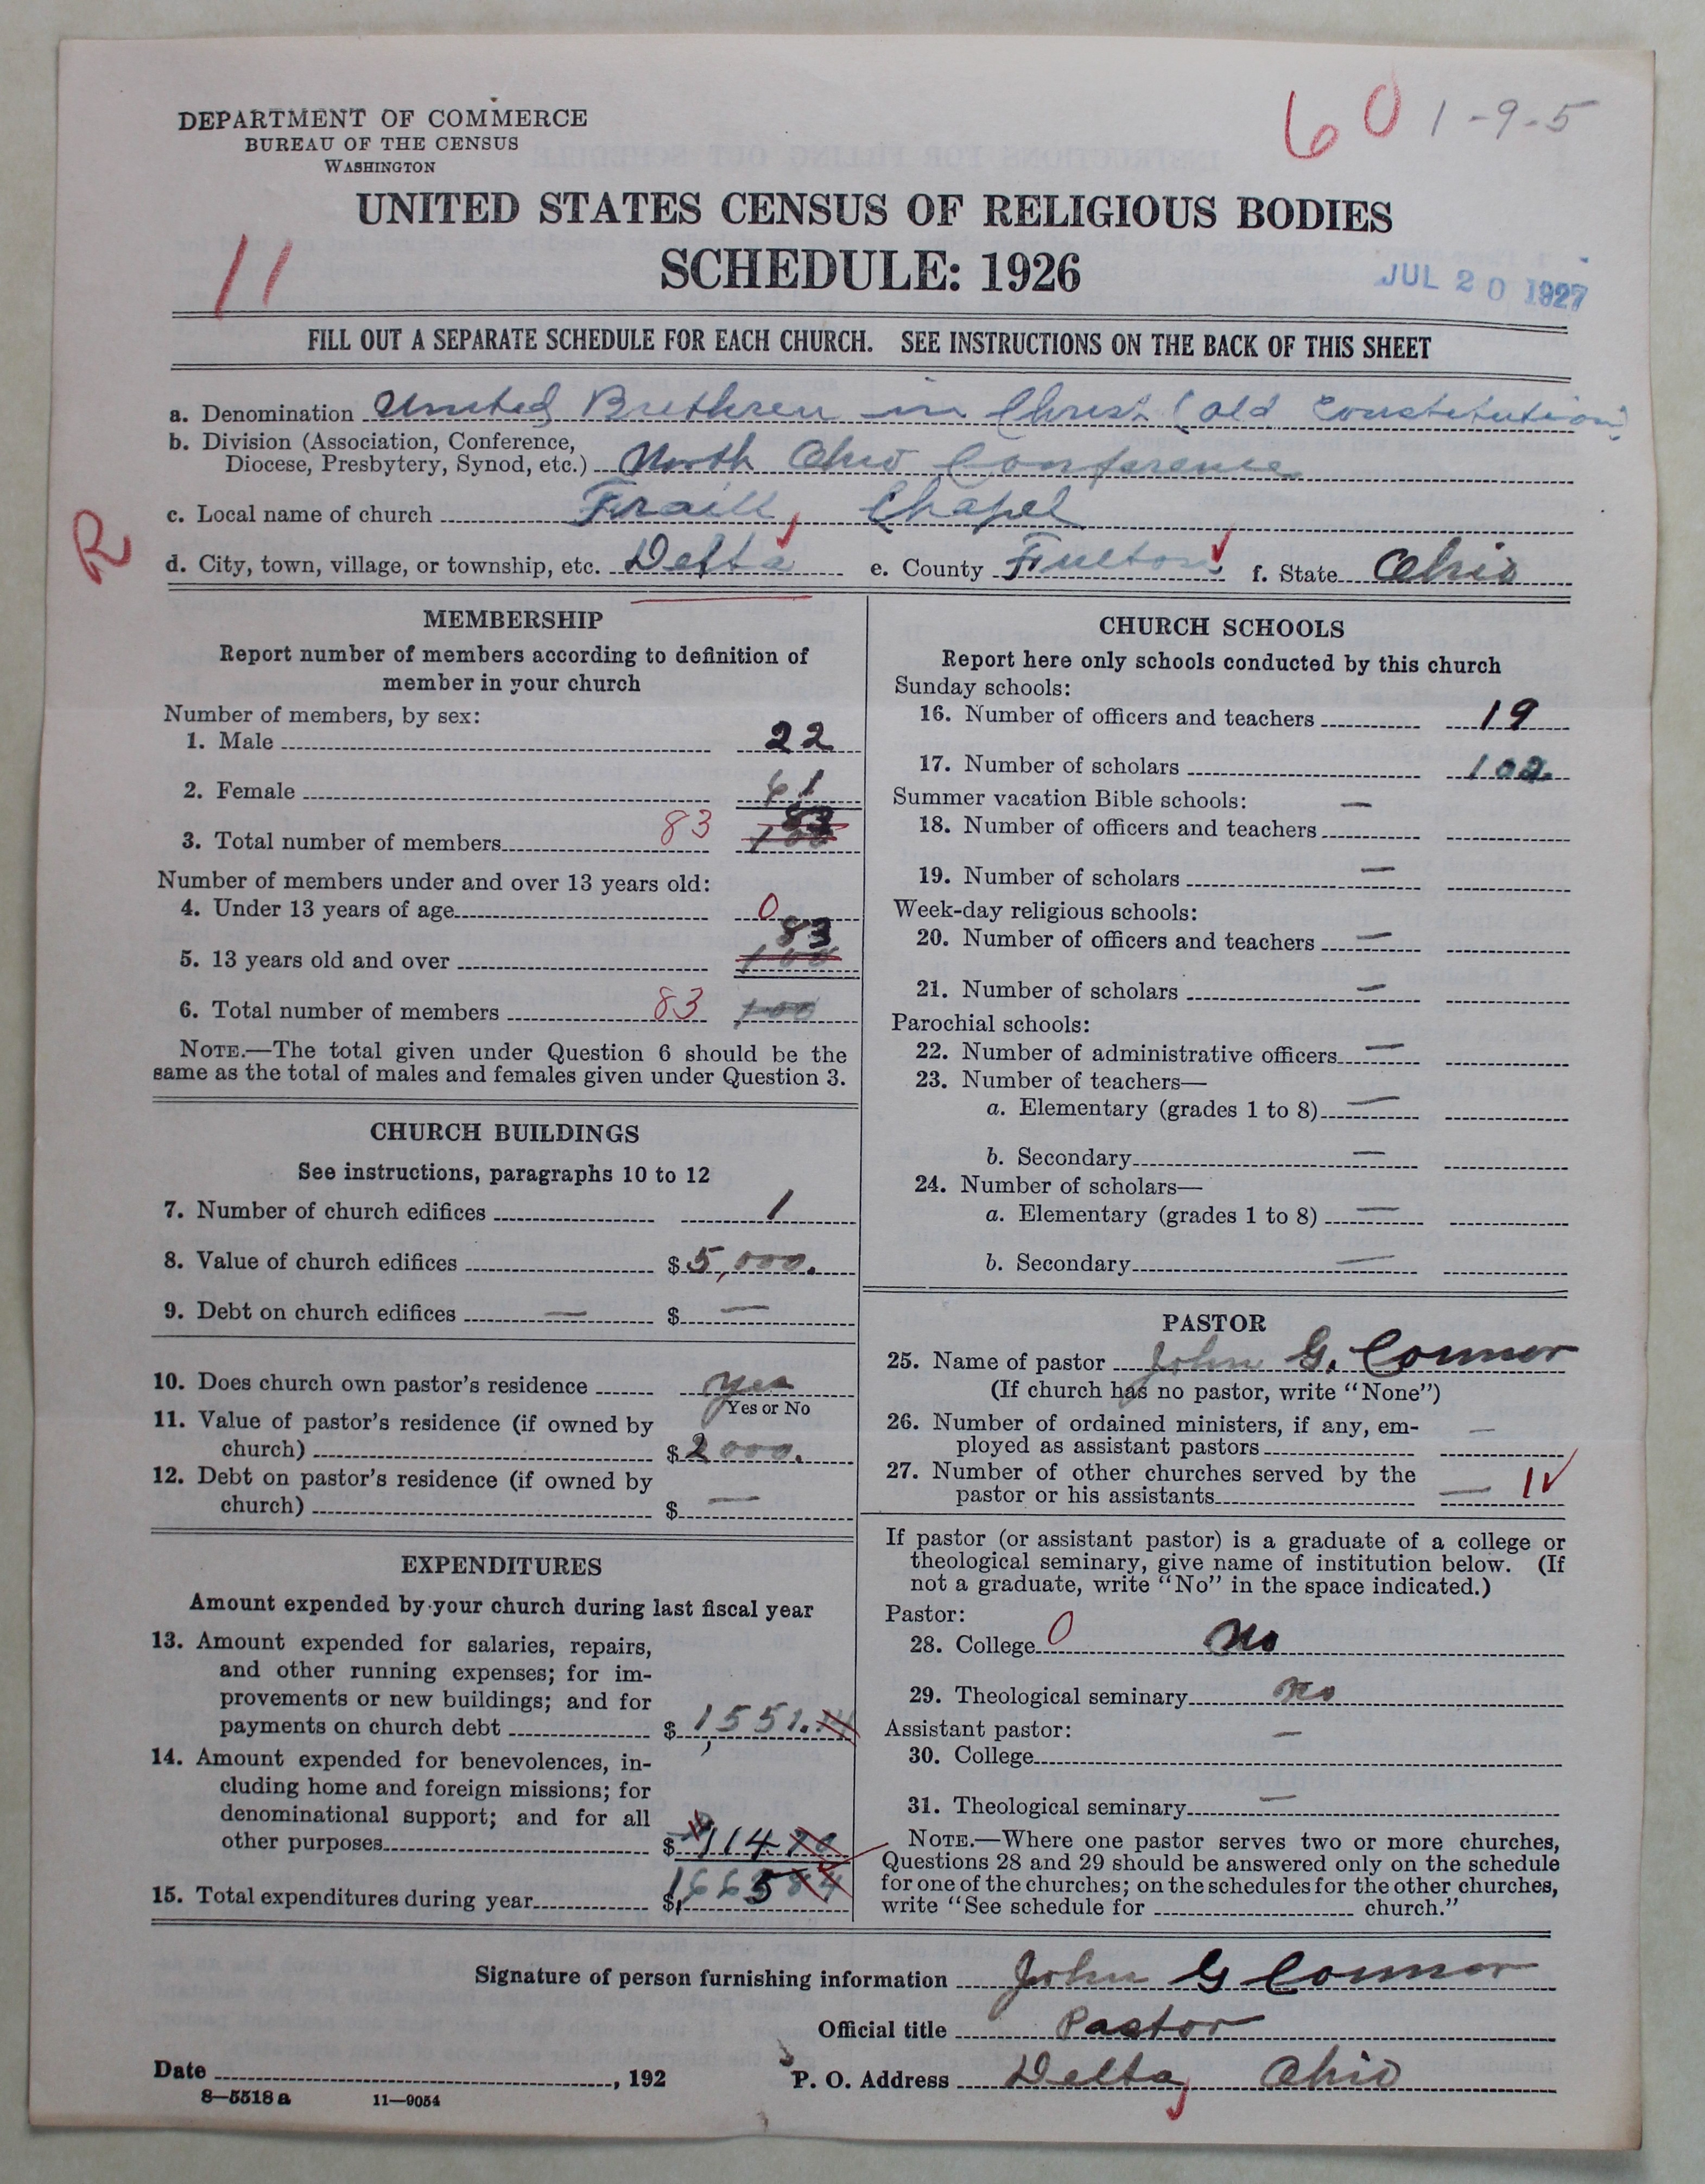 60 1-9-5
DEPARTMENT OF COMMERCE
BUREAU OF THE CENSUS
WASHINGTON
UNITED STATES CENSUS OF RELIGIOUS BODIES
11
SCHEDULE: 1926
JUL 20 1927
FILL OUT A SEPARATE SCHEDULE FOR EACH CHURCH. SEE INSTRUCTIONS ON THE BACK OF THIS SHEET
a. Denomination United Brethren in Christ (old Constitution)
b. Division (Association, Conference,
Diocese, Presbytery, Synod, etc.) North Ohio Conference
c. Local name of church Fraill Chapel
R
d. City, town, village, or township, etc. Delta e. County Fulton f. State Ohio
MEMBERSHIP
Report number of members according to definition of
member in your church
Number of members, by sex:
1. Male 22
2. Female 61
3. Total number of members 83 83 100
Number of members under and over 13 years old:
4. Under 13 years of age 0
5. 13 years old and over 83 100
6. Total number of members 83 100
NOTE.—The total given under Question 6 should be the
same as the total of males and females given under Question 3.
CHURCH BUILDINGS
See instructions, paragraphs 10 to 12
7. Number of church edifices 1
8. Value of church edifices $ 5,000.
9. Debt on church edifices — $ —
10. Does church own pastor's residence yes
Yes or No
11. Value of pastor's residence (if owned by
church) $ 2000.
12. Debt on pastor's residence (if owned by
church) $ —
EXPENDITURES
Amount expended by your church during last fiscal year
13. Amount expended for salaries, repairs,
and other running expenses; for im-
provements or new buildings; and for
payments on church debt $ 1,551.14
14. Amount expended for benevolences, in-
cluding home and foreign missions; for
denominational support; and for all
other purposes $ 114
15. Total expenditures during year $ 1,665 84
CHURCH SCHOOLS
Report here only schools conducted by this church
Sunday schools:
16. Number of officers and teachers 19
17. Number of scholars 102
Summer vacation Bible schools: —
18. Number of officers and teachers
19. Number of scholars —
Week-day religious schools:
20. Number of officers and teachers —
21. Number of scholars —
Parochial schools:
22. Number of administrative officers —
23. Number of teachers—
a. Elementary (grades 1 to 8) —
b. Secondary —
24. Number of scholars—
a. Elementary (grades 1 to 8) —
b. Secondary —
PASTOR
25. Name of pastor John G. Connor
(If church has no pastor, write "None")
26. Number of ordained ministers, if any, em-
ployed as assistant pastors —
27. Number of other churches served by the
pastor or his assistants — 1 ✓
If pastor (or assistant pastor) is a graduate of a college or
theological seminary, give name of institution below. (If
not a graduate, write "No" in the space indicated.)
Pastor:
28. College 0 No
29. Theological seminary no
Assistant pastor: —
30. College
31. Theological seminary —
NOTE.—Where one pastor serves two or more churches,
Questions 28 and 29 should be answered only on the schedule
for one of the churches; on the schedules for the other churches,
write "See schedule for church."
Signature of person furnishing information John G Connor
Official title Pastor
Date , 192 P. O. Address Delta, Ohio
8—5518 a 11—9054